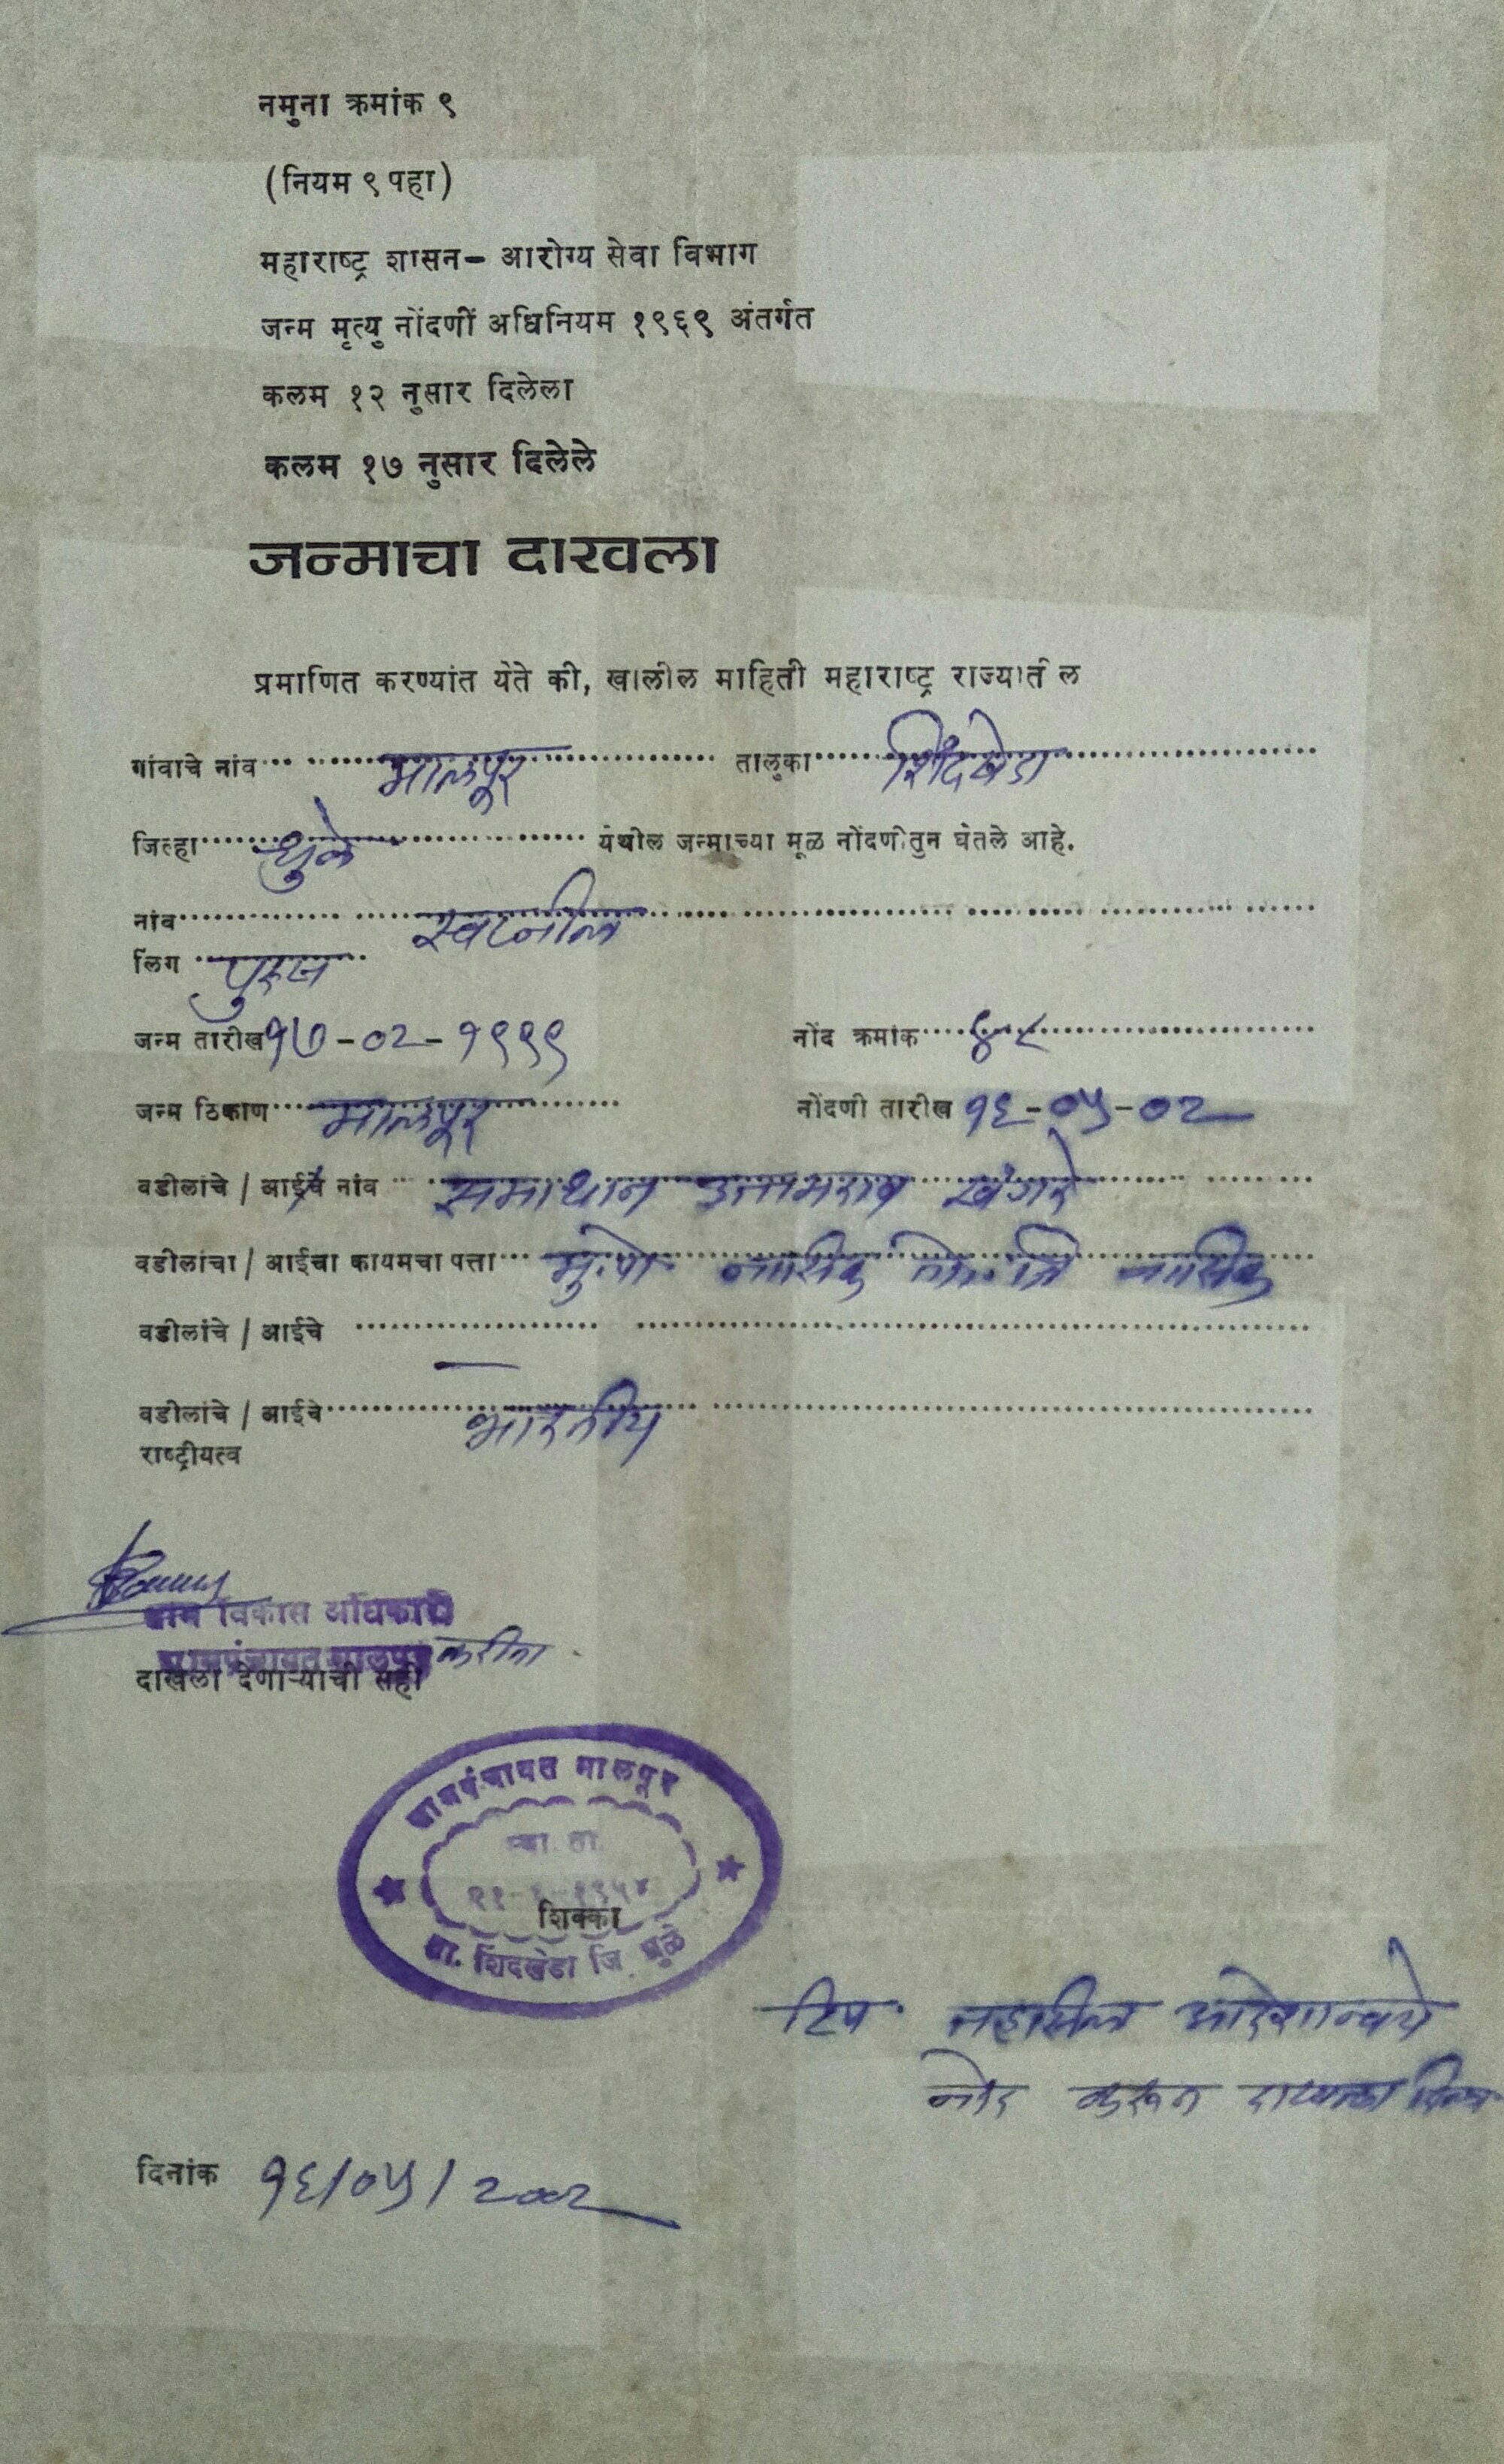 नमुना क्रमांक ९
(नियम ९ पहा)
महाराष्ट्र शासन- आरोग्य सेवा विभाग
जन्म मृत्यु नोंदणीं अधिनियम १९६९ अंतर्गत
कलम १२ नुसार दिलेला
कलम १७ नुसार दिलेले
जन्माचा दाखला
प्रमाणित करण्यांत येते की, खालील माहिती महाराष्ट्र राज्यातील
गांवाचे नांव मालपूर तालुका शिंदखेडा
जिल्हा धुळे येथील जन्माच्या मूळ नोंदणीतुन घेतले आहे.
नांव स्वप्नील
लिंग पुरुष
जन्म तारीख १७-०२-१९९९ नोंद क्रमांक
जन्म ठिकाण मालपूर नोंदणी तारीख १६-०५-०२
वडीलांचे / आईचे नांव समाधान उत्तमराव खंगरे
वडीलांचा / आईचा कायमचा पत्ता मु.पो नासिक ता. जि नासिक
वडीलांचे / आईचे —
वडीलांचे / आईचे भारतीय
राष्ट्रीयत्व
ग्राम विकास अधिकारी
ग्रामपंचायत मालपूर करीता
दाखला देणाऱ्याची सही
ग्रामपंचायत मालपूर
स्था. ता.
शिक्का
ता. शिंदखेडा जि. धुळे
टिप तहसिल आदेशान्वये
नोंद करून दाखला दिला
दिनांक १६/०५/२००२